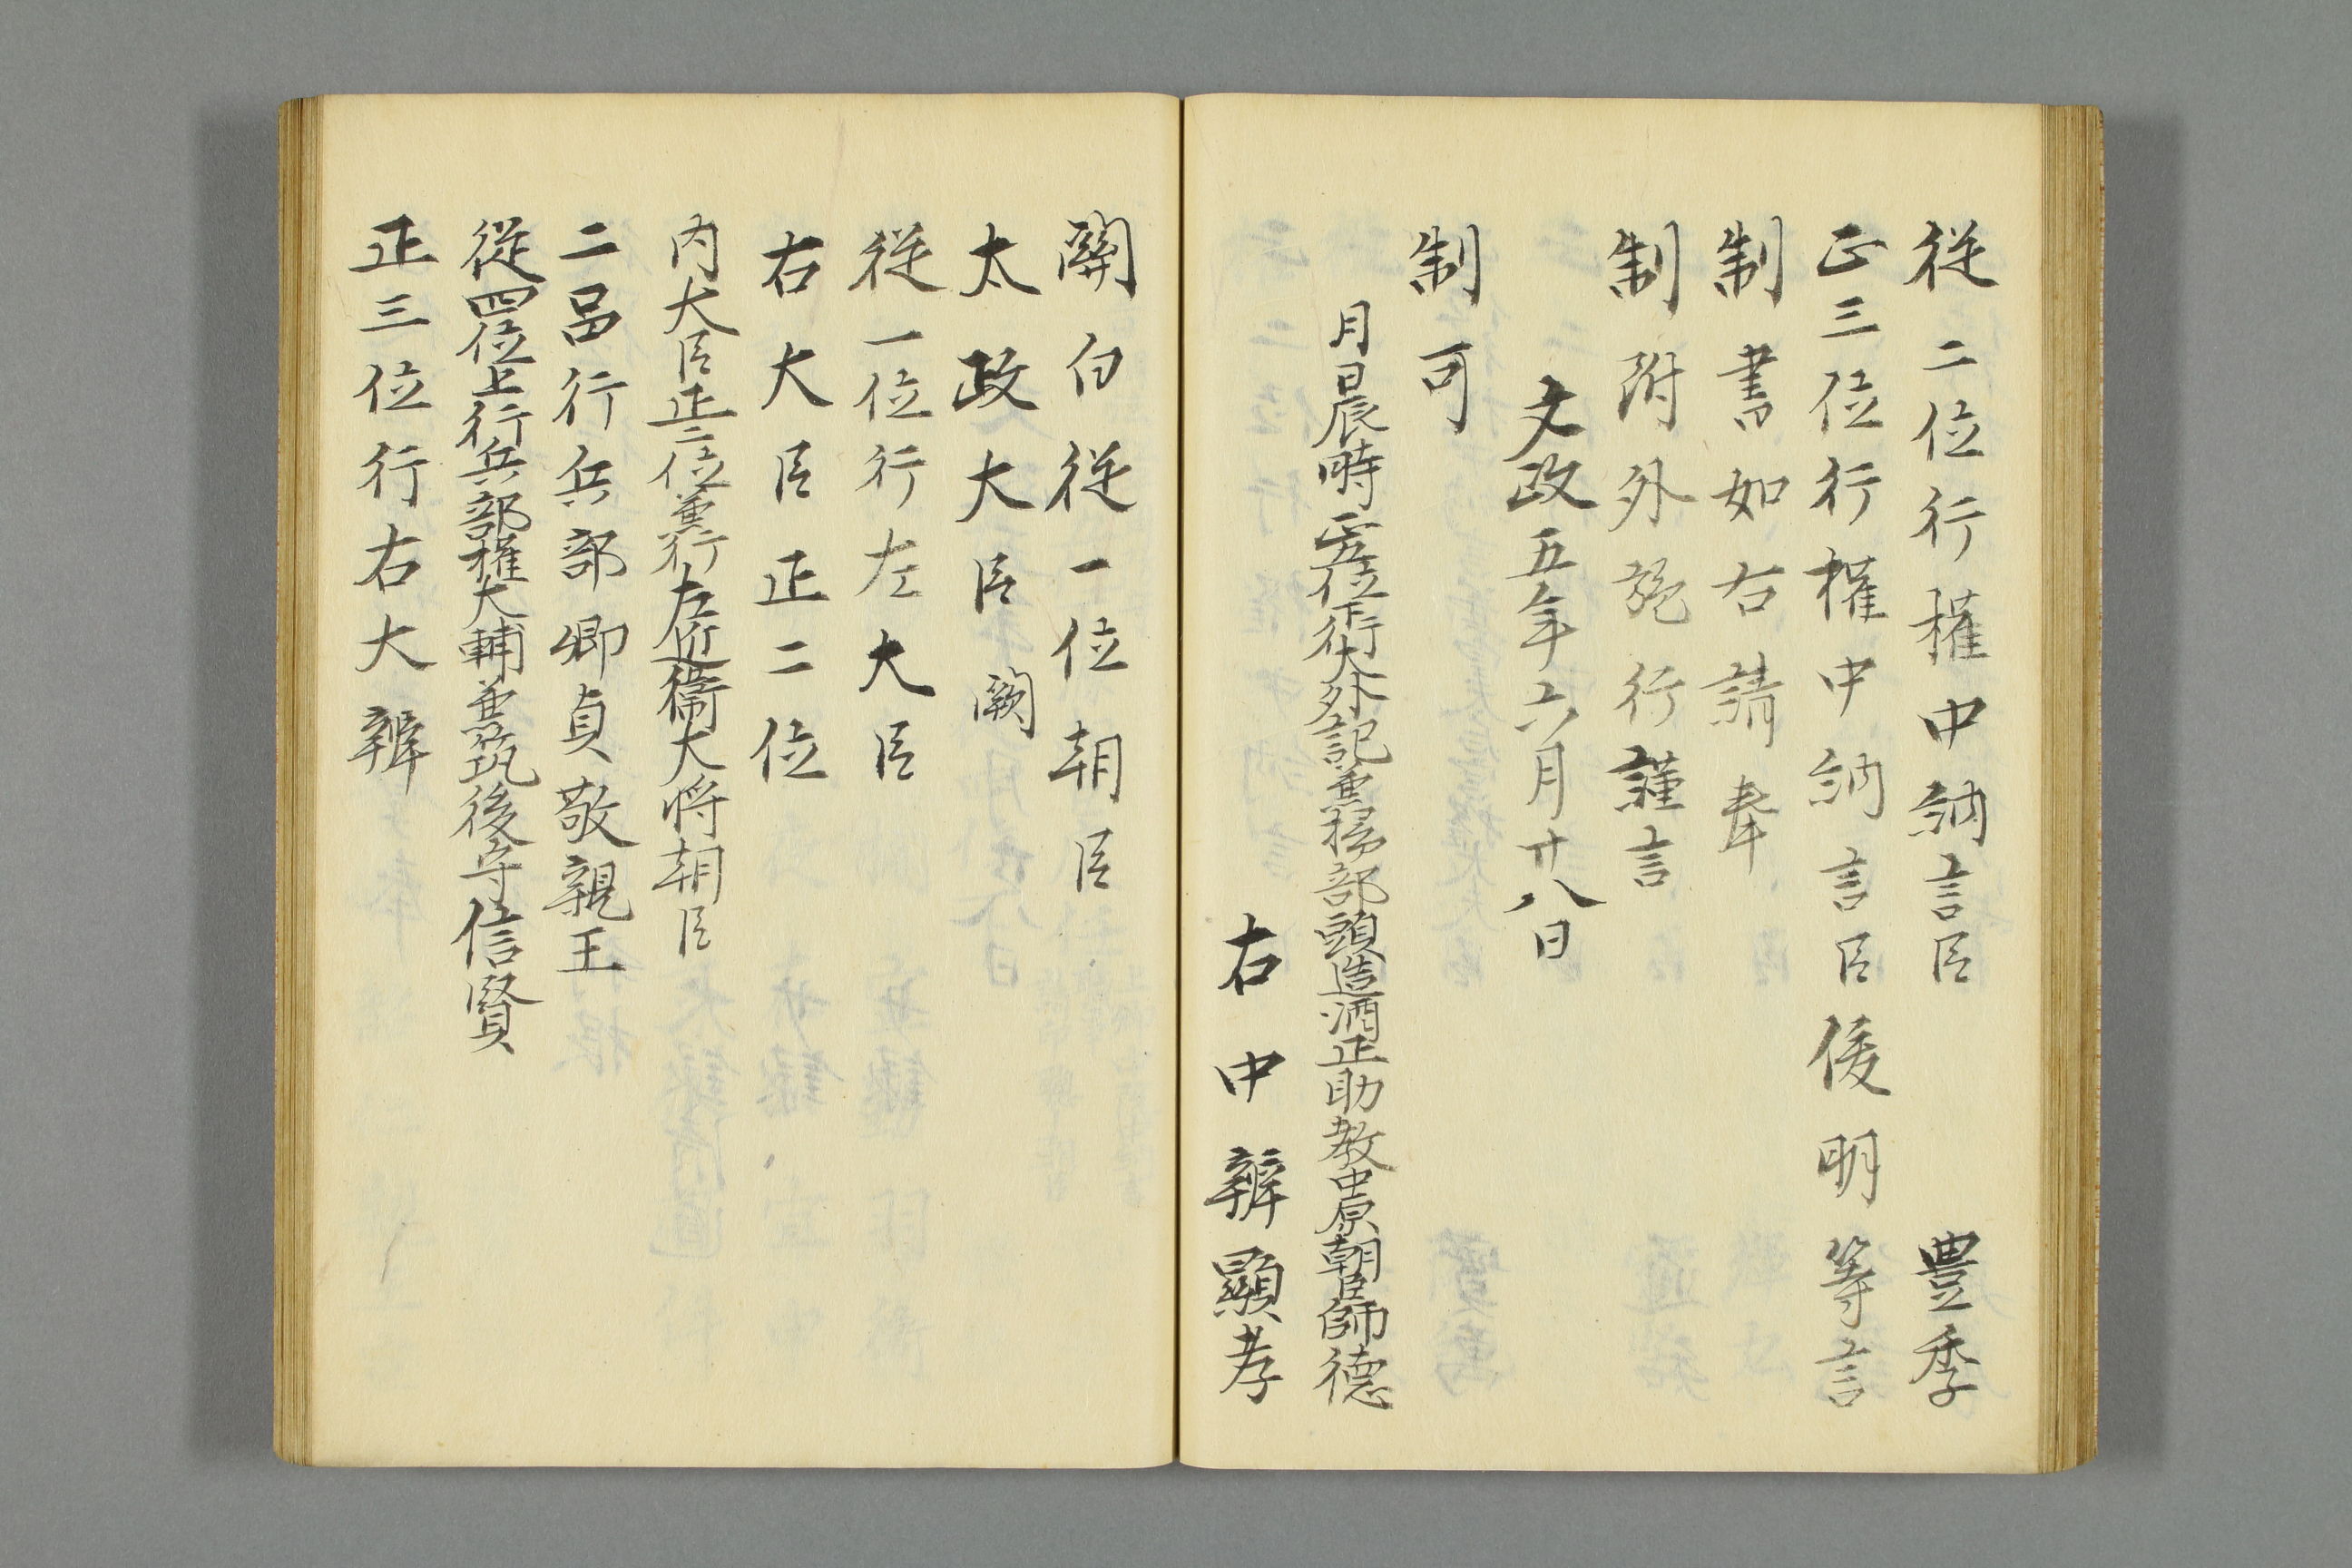 従二位行権中納言臣　豊季
正三位行権中納言臣俊明等言
制書如右請奉
制附外施行謹言
文政五年六月廿八日
制可
月日辰時正五位下行大外記兼掃部頭造酒正助教中原朝臣師徳
右中辨顕孝
関白従一位朝臣
太政大臣闕
従一位行左大臣
右大臣正二位
内大臣正二位兼行左近衛大将朝臣
二品行兵部卿貞敬親王
従四位上行兵部権大輔兼筑後守信賢
正三位行右大辨